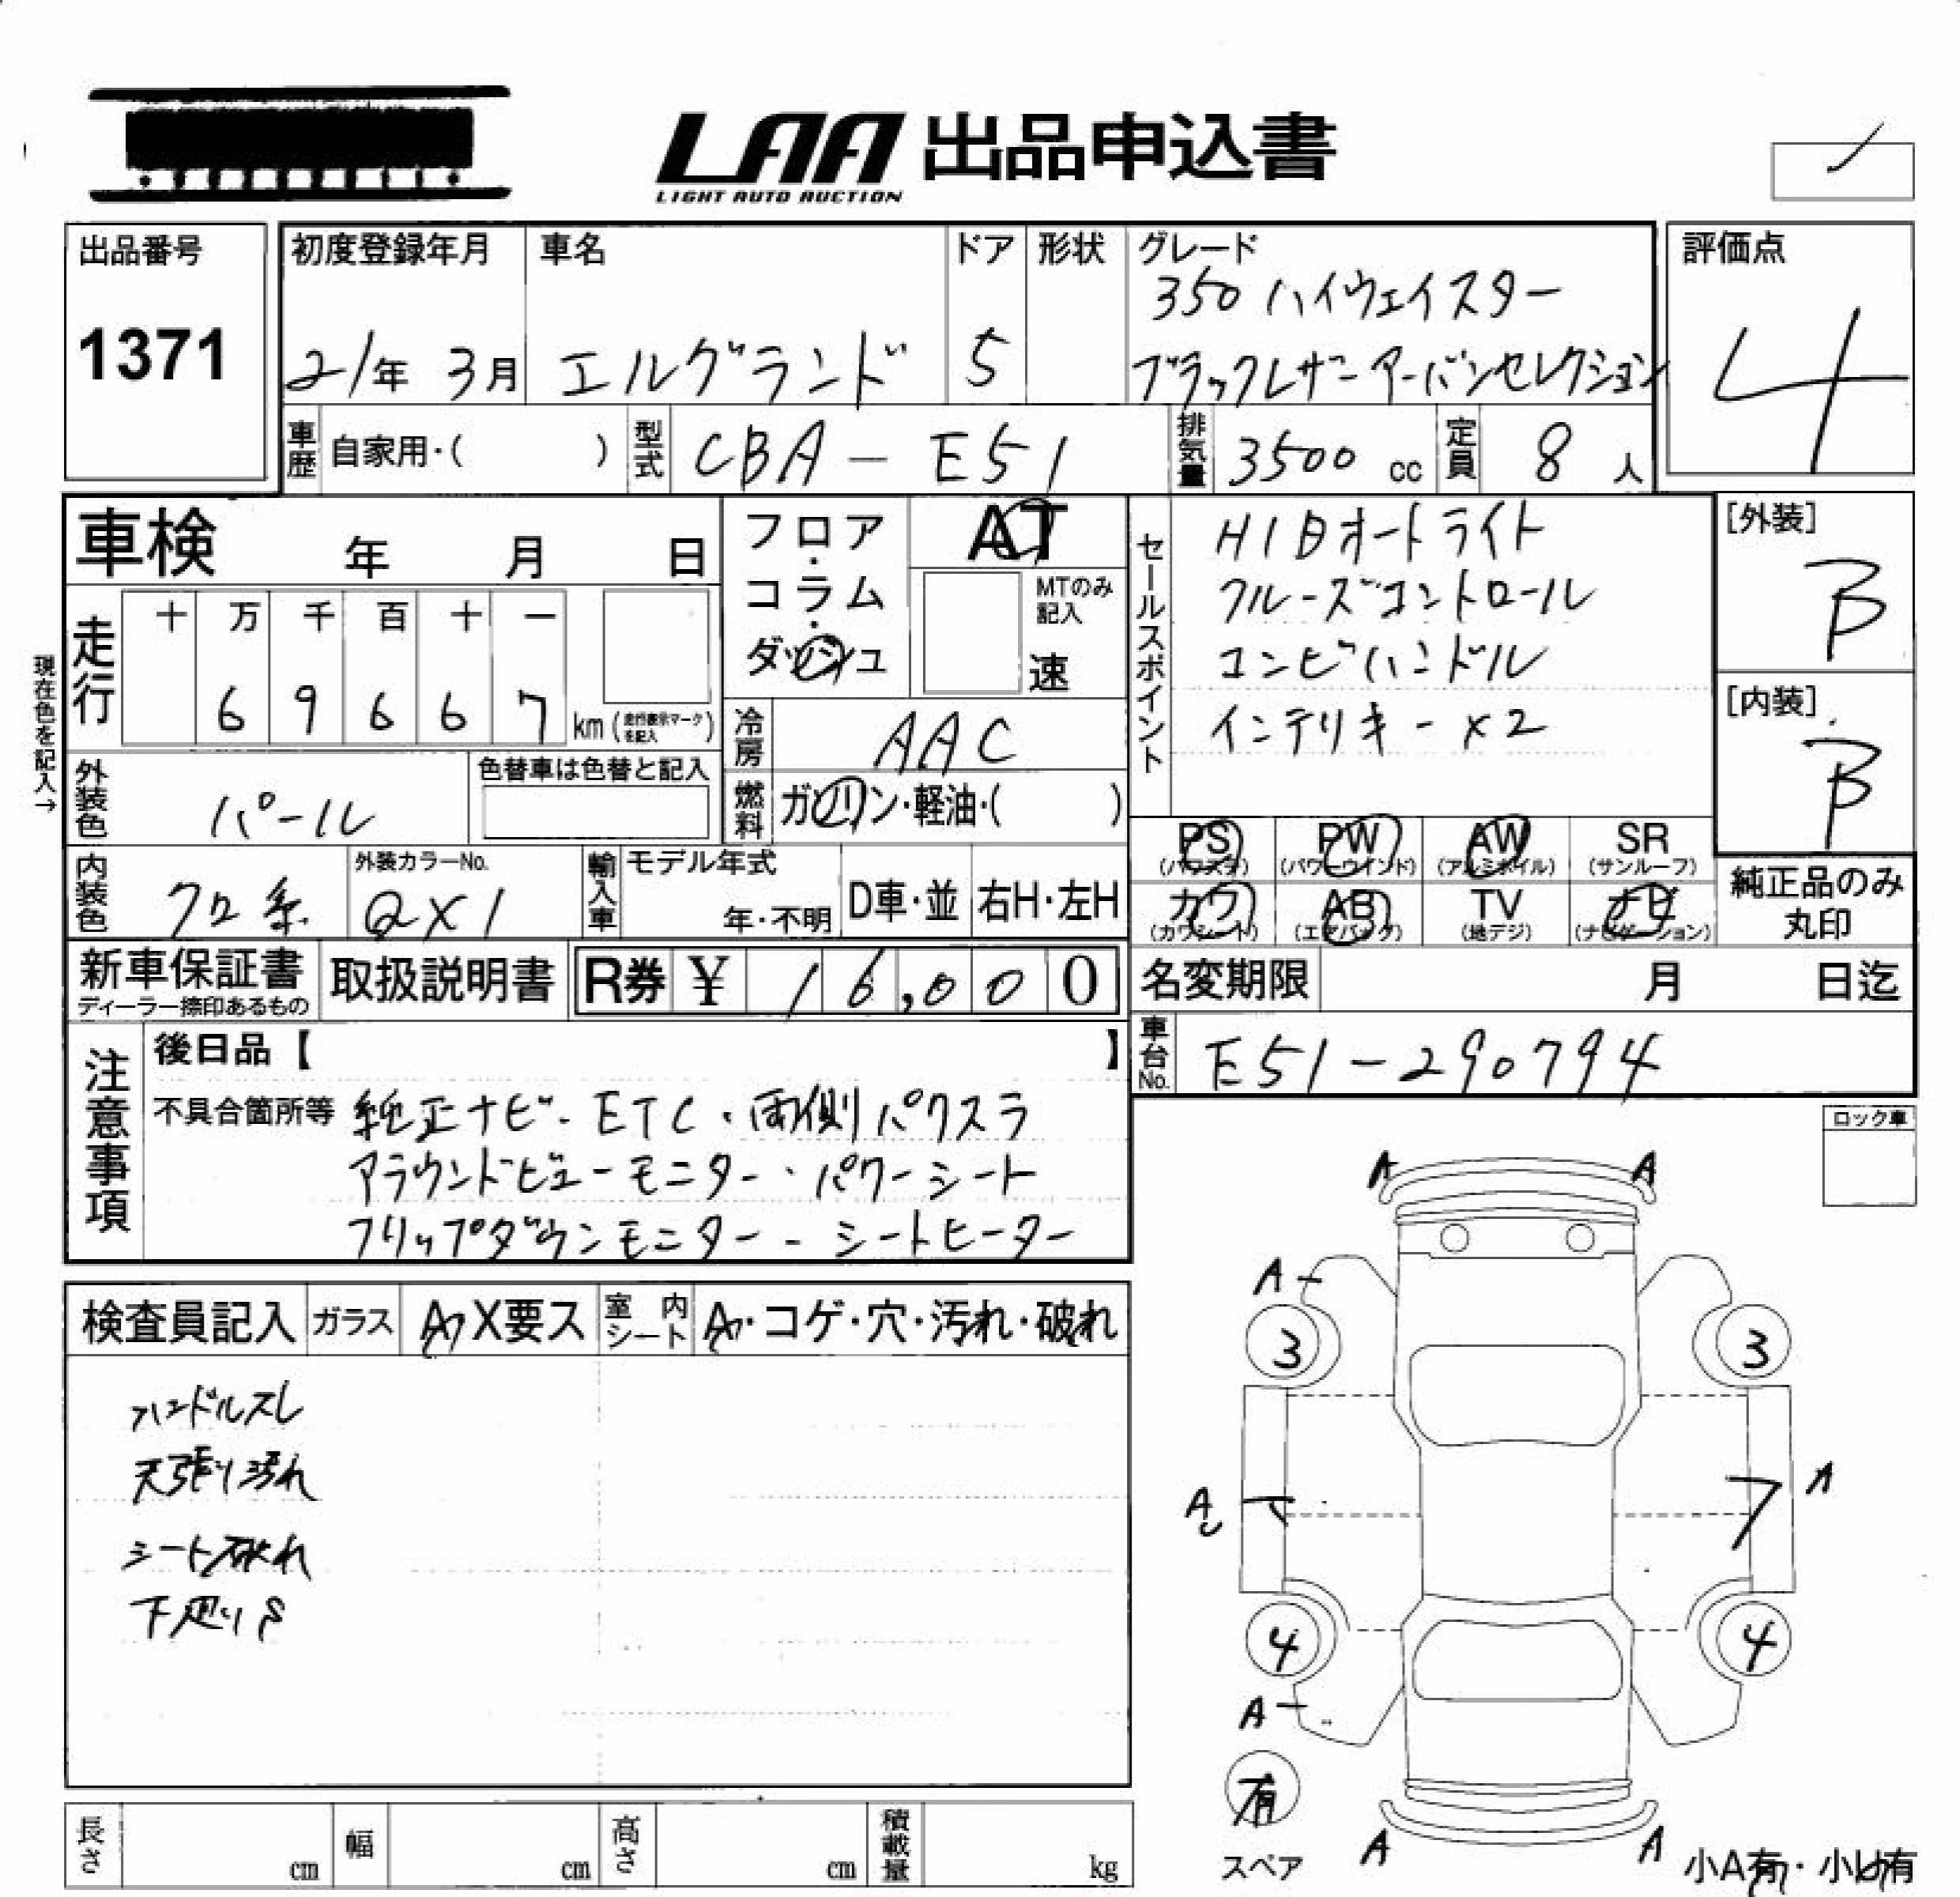 LAA 出品申込書
LIGHT AUTO AUCTION
出品番号
1371
初度登録年月
21年 3月
車名
エルグランド
ドア
5
形状
グレード
350 ハイウェイスター
ブラックレザーアーバンセレクション
評価点
4
車歴 自家用・( )
型式 CBA-E51
排気量 3500 cc
定員 8 人
車検 年 月 日
フロア・コラム・ダッシュ
AT
MTのみ記入
速
セールスポイント
HIDオートライト
クルーズコントロール
コンビハンドル
インテリキー x2
[外装]
B
[内装]
B
現在色を記入→
走行
十 万 千 百 十 一
6 9 6 6 7 km (走行表示マークを記入)
冷房 AAC
外装色 パール
色替車は色替と記入
燃料 ガソリン・軽油・( )
PS (パワステ)
PW (パワーウインド)
AW (アルミホイル)
SR (サンルーフ)
カワ (カワシート)
AB (エアバック)
TV (地デジ)
ナビ (ナビゲーション)
純正品のみ丸印
内装色 クロ系
外装カラーNo.
QX1
輸入車 モデル年式
年・不明
D車・並
右H・左H
新車保証書
ディーラー捺印あるもの
取扱説明書
R券 ¥ 16,000
名変期限 月 日迄
車台No. E51-290794
注意事項
後日品【 】
不具合箇所等 純正ナビ・ETC・両側パワスラ
アラウンドビューモニター・パワーシート
フリップダウンモニター・シートヒーター
ロック車
検査員記入 ガラス A X要ス 室内シート A・コゲ・穴・汚れ・破れ
ハンドルスレ
天張り汚れ
シート破れ
下廻りS
A A
A
3 3
A A
4 4
A
有
スペア
A A
小A有・小U有
長さ cm 幅 cm 高さ cm 積載量 kg